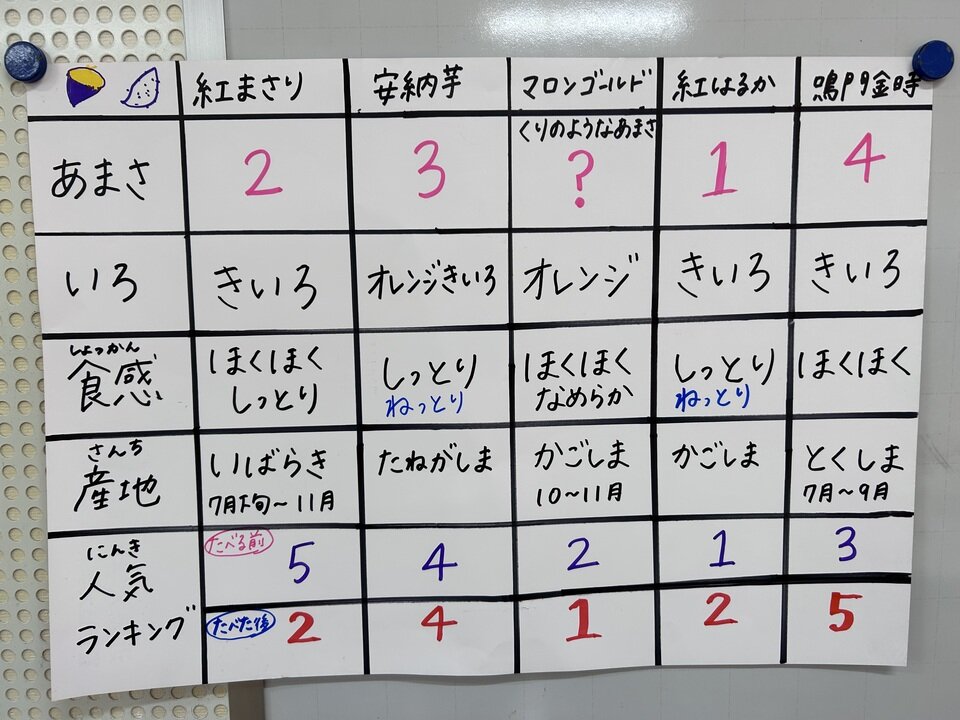 紅まさり 安納芋 マロンゴールド 紅はるか 鳴門金時
くりのようなあまさ
あまさ 2 3 ? 1 4
いろ きいろ オレンジきいろ オレンジ きいろ きいろ
しょっかん
食感 ほくほく しっとり ほくほく しっとり ほくほく
しっとり ねっとり なめらか ねっとり
さんち
産地 いばらき たねがしま かごしま かごしま とくしま
7月下旬〜11月 10〜11月 7月〜9月
にんき
人気 たべる前 5 4 2 1 3
ランキング たべた後 2 4 1 2 5